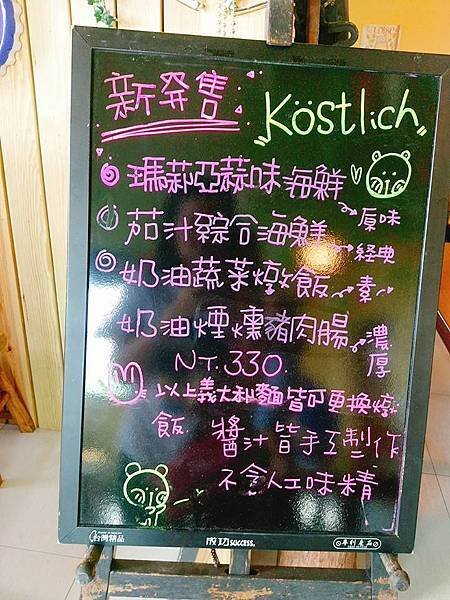 新発售 "Köstlich"
瑪莉亞蒜味海鮮→原味
茄汁綜合海鮮→経典
奶油蔬菜燉飯→素
奶油煙燻豬肉腸→濃厚
NT.330.
以上義大利麵皆可更換燉
飯 醬汁皆手工製作
不含人工味精
台灣精品 成功 success. 專利產品